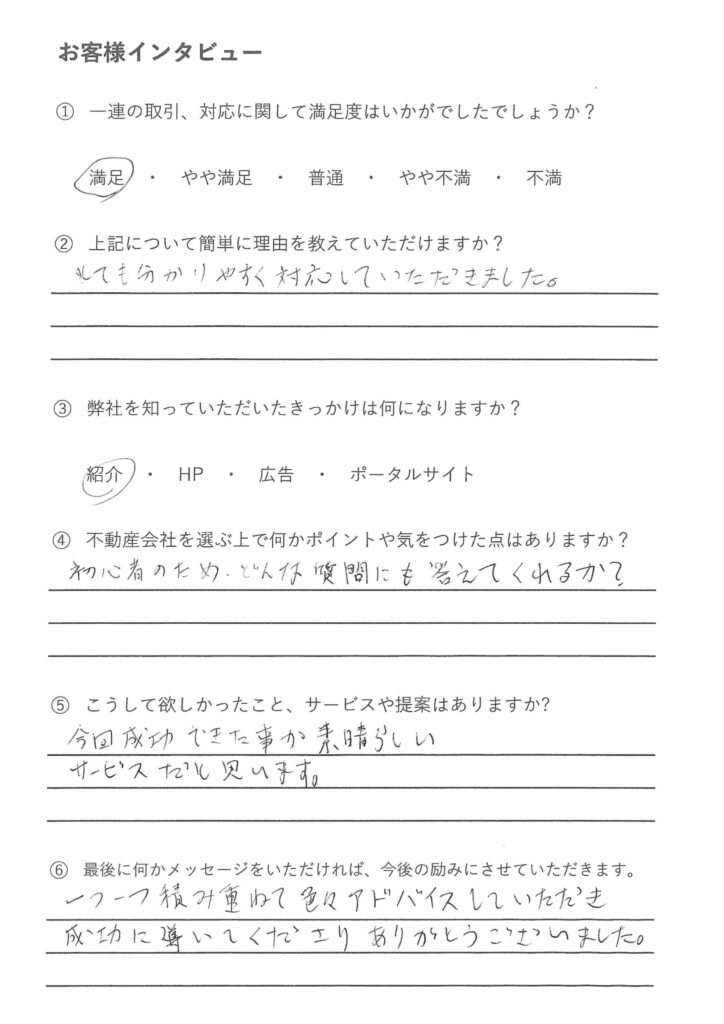 お客様インタビュー
① 一連の取引、対応に関して満足度はいかがでしたでしょうか？
満足 ・ やや満足 ・ 普通 ・ やや不満 ・ 不満
② 上記について簡単に理由を教えていただけますか？
とても分かりやすく対応していただきました。
③ 弊社を知っていただいたきっかけは何になりますか？
紹介 ・ HP ・ 広告 ・ ポータルサイト
④ 不動産会社を選ぶ上で何かポイントや気をつけた点はありますか？
初心者のため、どんな質問にも答えてくれるか？
⑤ こうして欲しかったこと、サービスや提案はありますか?
今回成功できた事が素晴らしい
サービスだと思います。
⑥ 最後に何かメッセージをいただければ、今後の励みにさせていただきます。
一つ一つ積み重ねて色々アドバイスしていただき
成功に導いてくださりありがとうございました。